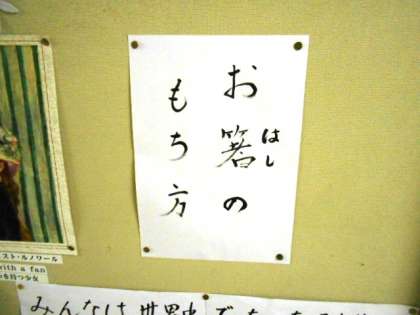 お箸の
はし
もち方
スト・ルノワール
with a fan
を持つ少女
みんなは世界中で